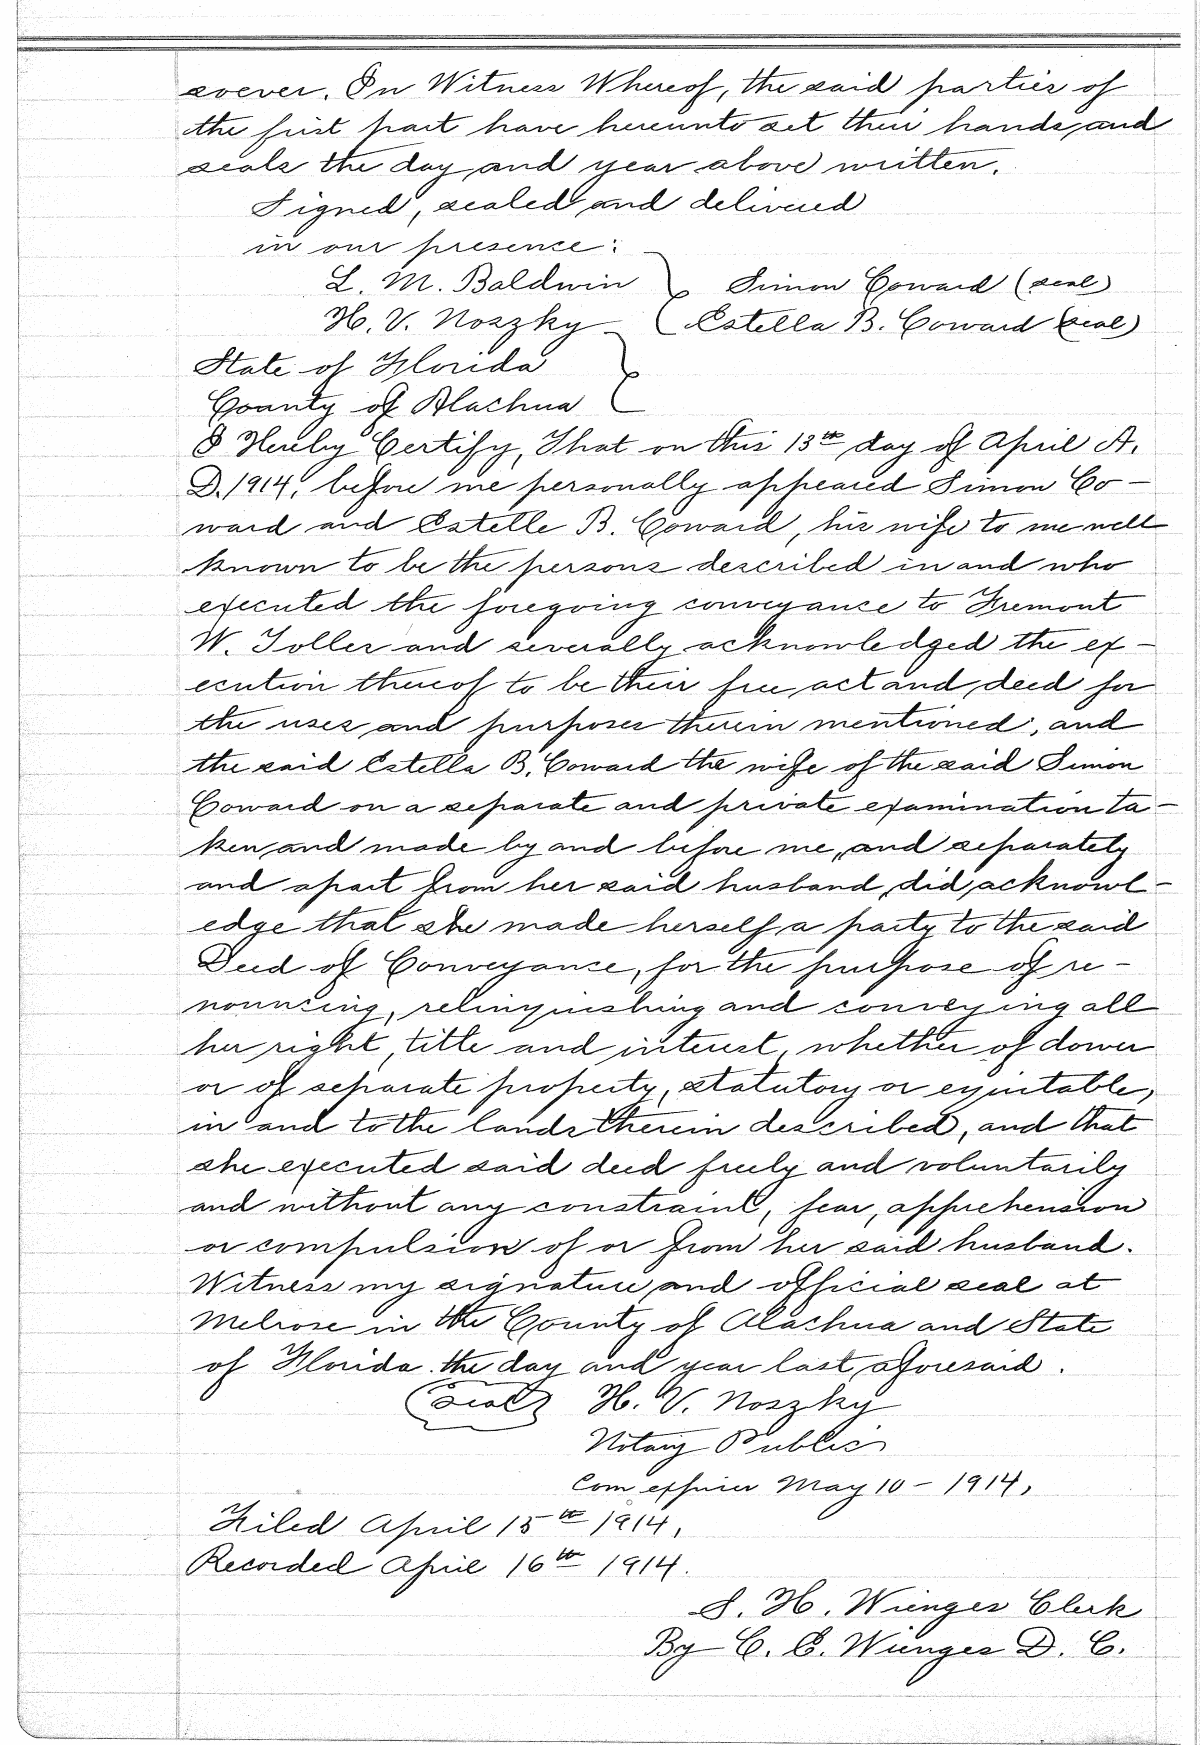 soever. In Witness Whereof, the said parties of
the first part have hereunto set their hands and
seals the day and year above written.
Signed, sealed and delivered
in our presence:
L. M. Baldwin } Simon Coward (seal)
H. V. Noszky ( Estella B. Coward (seal)
State of Florida }
County of Alachua
I Hereby Certify, That on this 13th day of April A.
D. 1914, before me personally appeared Simon Co-
ward and Estelle B. Coward, his wife to me well
known to be the persons described in and who
executed the foregoing conveyance to Fremont
W. Toller and severally acknowledged the ex-
ecution thereof to be their free act and deed for
the uses and purposes therein mentioned; and
the said Estella B. Coward the wife of the said Simon
Coward on a separate and private examination ta-
ken and made by and before me, and separately
and apart from her said husband, did acknowl-
edge that she made herself a party to the said
Deed of Conveyance, for the purpose of re-
nouncing, relinquishing and conveying all
her right, title and interest, whether of dower
or of separate property, statutory or equitable,
in and to the lands therein described, and that
she executed said deed freely and voluntarily
and without any constraint, fear, apprehension
or compulsion of or from her said husband.
Witness my signature and official seal at
Melrose in the County of Alachua and State
of Florida the day and year last aforesaid.
(Seal) H. V. Noszky
Notary Public
Com expires May 10 - 1914,
Filed April 15th 1914,
Recorded April 16th 1914.
S. H. Wienges Clerk
By C. C. Wienges D. C.